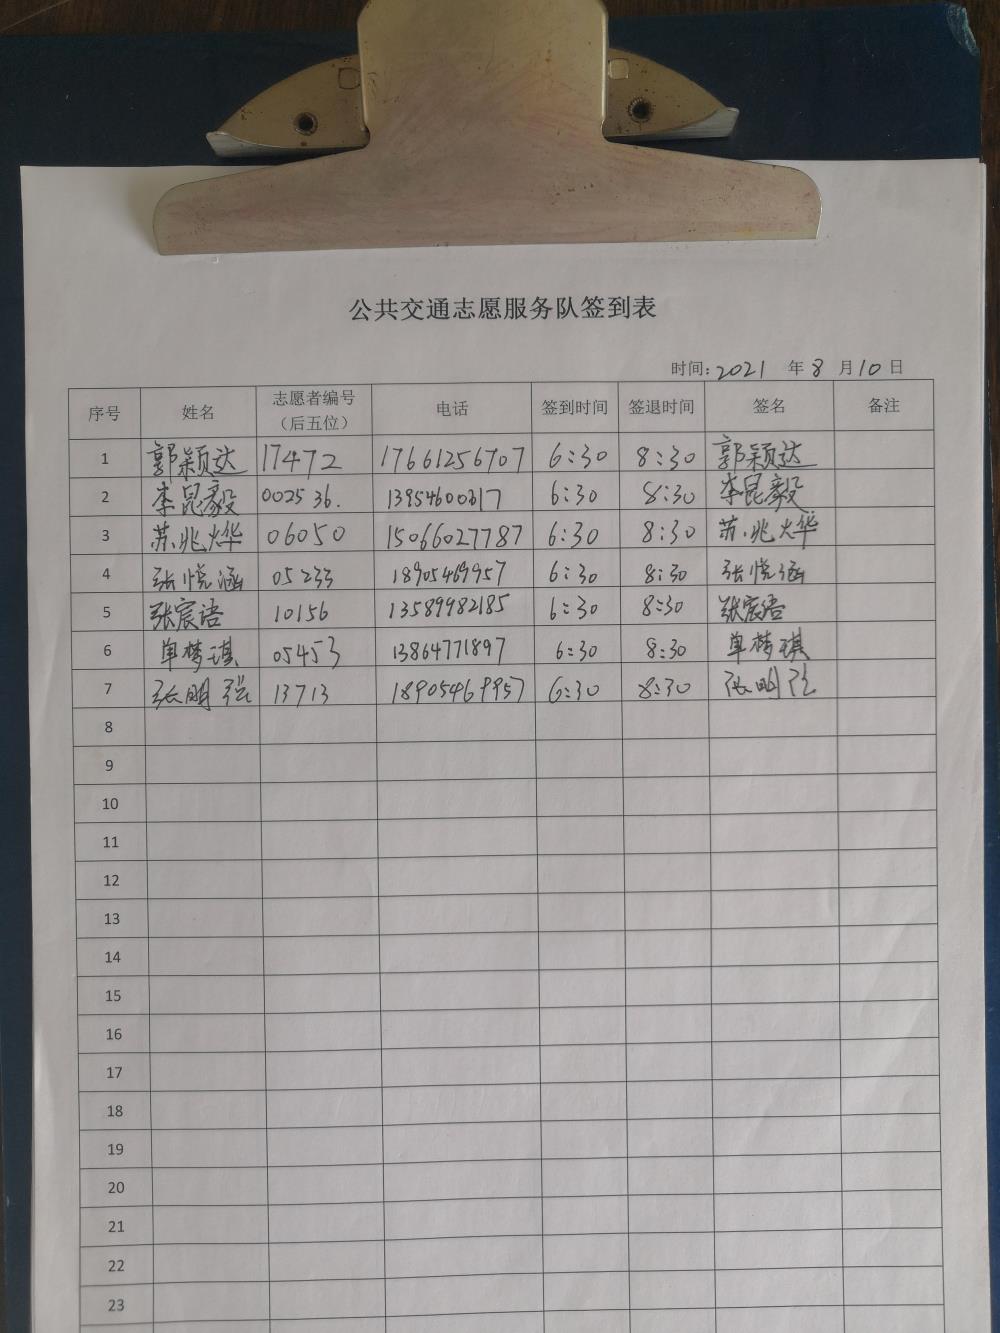 公共交通志愿服务队签到表
时间: 2021 年 8 月 10 日
序号 姓名 志愿者编号（后五位） 电话 签到时间 签退时间 签名 备注
1 郭颖达 17472 17661256707 6:30 8:30 郭颖达
2 李昆毅 002536. 13954600317 6:30 8:30 李昆毅
3 苏兆烨 06050 15066027787 6:30 8:30 苏兆烨
4 张悦涵 05233 18905469957 6:30 8:30 张悦涵
5 张宸语 10156 13589982185 6:30 8:30 张宸语
6 单梦琪 05453 13864771897 6:30 8:30 单梦琪
7 张明强 13713 18905469957 6:30 8:30 张明强
8
9
10
11
12
13
14
15
16
17
18
19
20
21
22
23